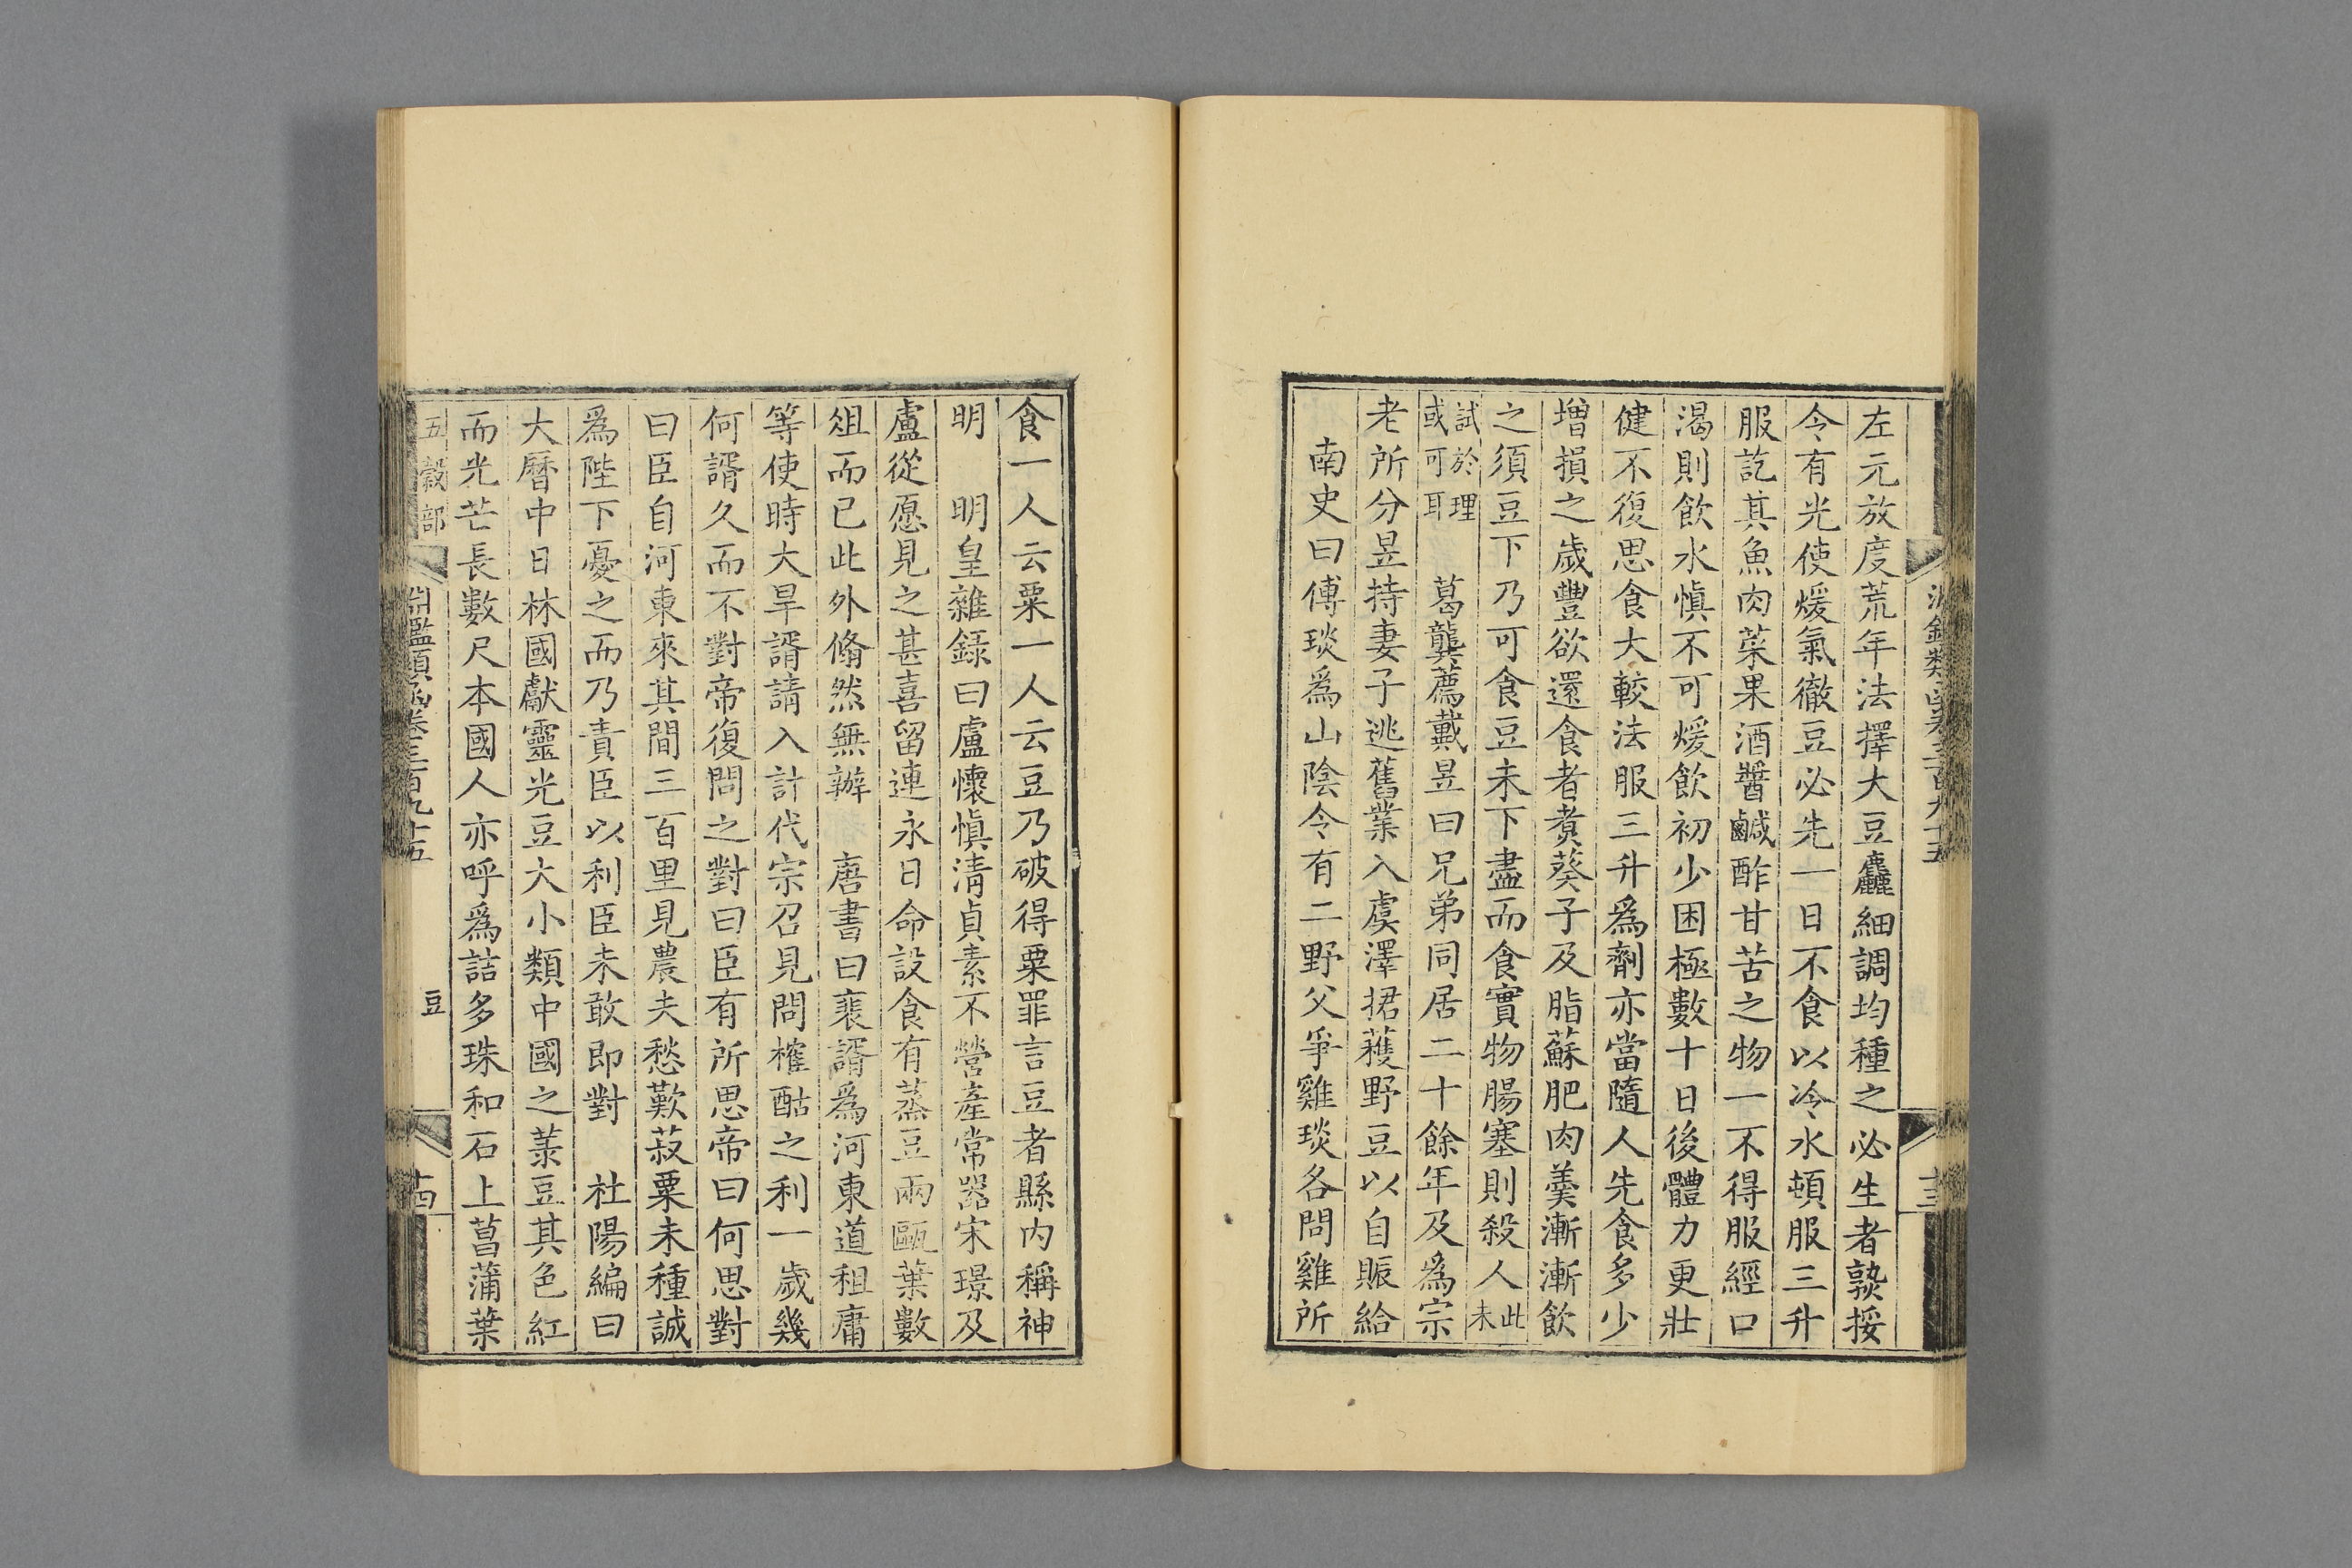 左元放度荒年法擇大豆麤細調均種之必生者孰挼
令有光使煖氣徹豆必先一日不食以冷水頓服三升
服訖其魚肉菜果酒醬鹹酢甘苦之物一不得服經口
渴則飲水慎不可煖飲初少困極數十日後體力更壯
健不復思食大較法服三升爲劑亦當隨人先食多少
增損之歲豐欲還食者煑葵子及脂蘇肥肉羹漸漸飲
之須豆下乃可食豆未下盡而食實物腸塞則殺人此未
試於理或可耳　葛龔薦戴昱曰兄弟同居二十餘年及爲宗
老所分昱持妻子逃舊業入虞澤捃穫野豆以自賑給
南史曰傅琰爲山陰令有二野父爭雞琰各問雞所
十三
食一人云粟一人云豆乃破得粟罪言豆者縣内稱神
明　明皇雜錄曰盧懷慎清貞素不營產常器宋璟及
盧從愿見之甚喜留連永日命設食有蒸豆兩甌葉數
俎而已此外翛然無辦　唐書曰裴諝爲河東道租庸
等使時大旱諝請入計代宗召見問榷酤之利一歲幾
何諝久而不對帝復問之對曰臣有所思帝曰何思對
曰臣自河東來其間三百里見農夫愁歎菽粟未種誠
爲陛下憂之而乃責臣以利臣未敢即對　社陽編曰
大曆中日林國獻靈光豆大小類中國之菉豆其色紅
而光芒長數尺本國人亦呼爲詰多珠和石上菖蒲葉
五穀部　淵鑑類函卷三百九十五　豆　十四